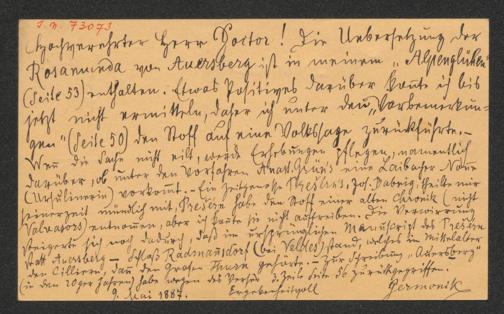 J. N. 73073
Hochverehrter Herr Doctor! Die Uebersetzung der
Rosamunda von Auersberg ist in meinem „Alpenglühen"
(Seite 53) enthalten. Etwas Positives darüber konte ich bis
jetzt nicht ermitteln, daher ich unter den „Vorbemerkun-
gen" (Seite 50) den Stoff auf eine Volkssage zurückführte. –
Wen die Sache nicht eilt, werde Erhebungen pflegen, namentlich
darüber, ob unter den Vorfahren Anast. Grüns eine Laibacher Nonne
(Ursulinerin) vorkomt. – Ein Zeitgenosse Presérens, Jos. Babnig, theilte mir
seinerzeit mündlich mit, Preséren habe den Stoff einer alten Chronik (nicht
Valvasors) entnommen, aber ich konte sie nicht auftreiben. Die Verwirrung
steigerte sich noch dadurch, daß im ursprünglichen Manuscript des Preséren
statt Auersberg – Schloß Radmansdorf (bei Veldes) stand, welches im Mittelalter
den Cilliern, dan den Grafen Thurn gehörte. – Zur Schreibung „Auersberg"
(in den 20ger Jahren) habe wegen des Verses 3. Zeile Seite 56 zurückgegriffen.
9. Mai 1887. Ergebenheitsvoll
Germonik